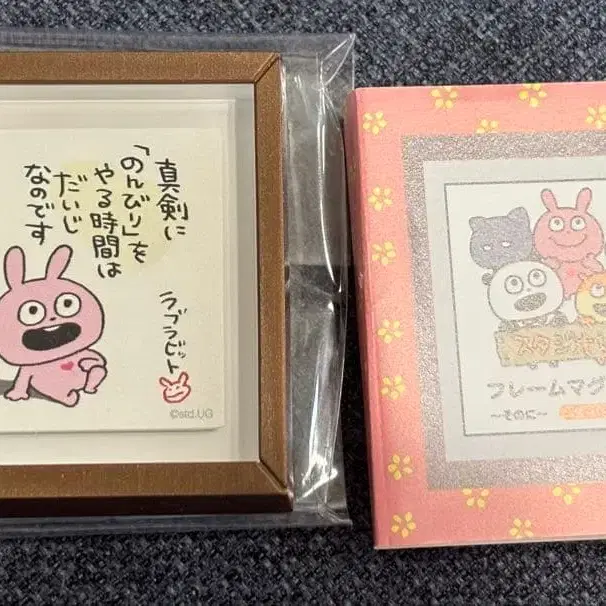 真剣に
「のんびり」を
やる時間は
だいじ
なのです
ラブラビット
©std.UG
スタジオ
フレームマグ
～そのに～